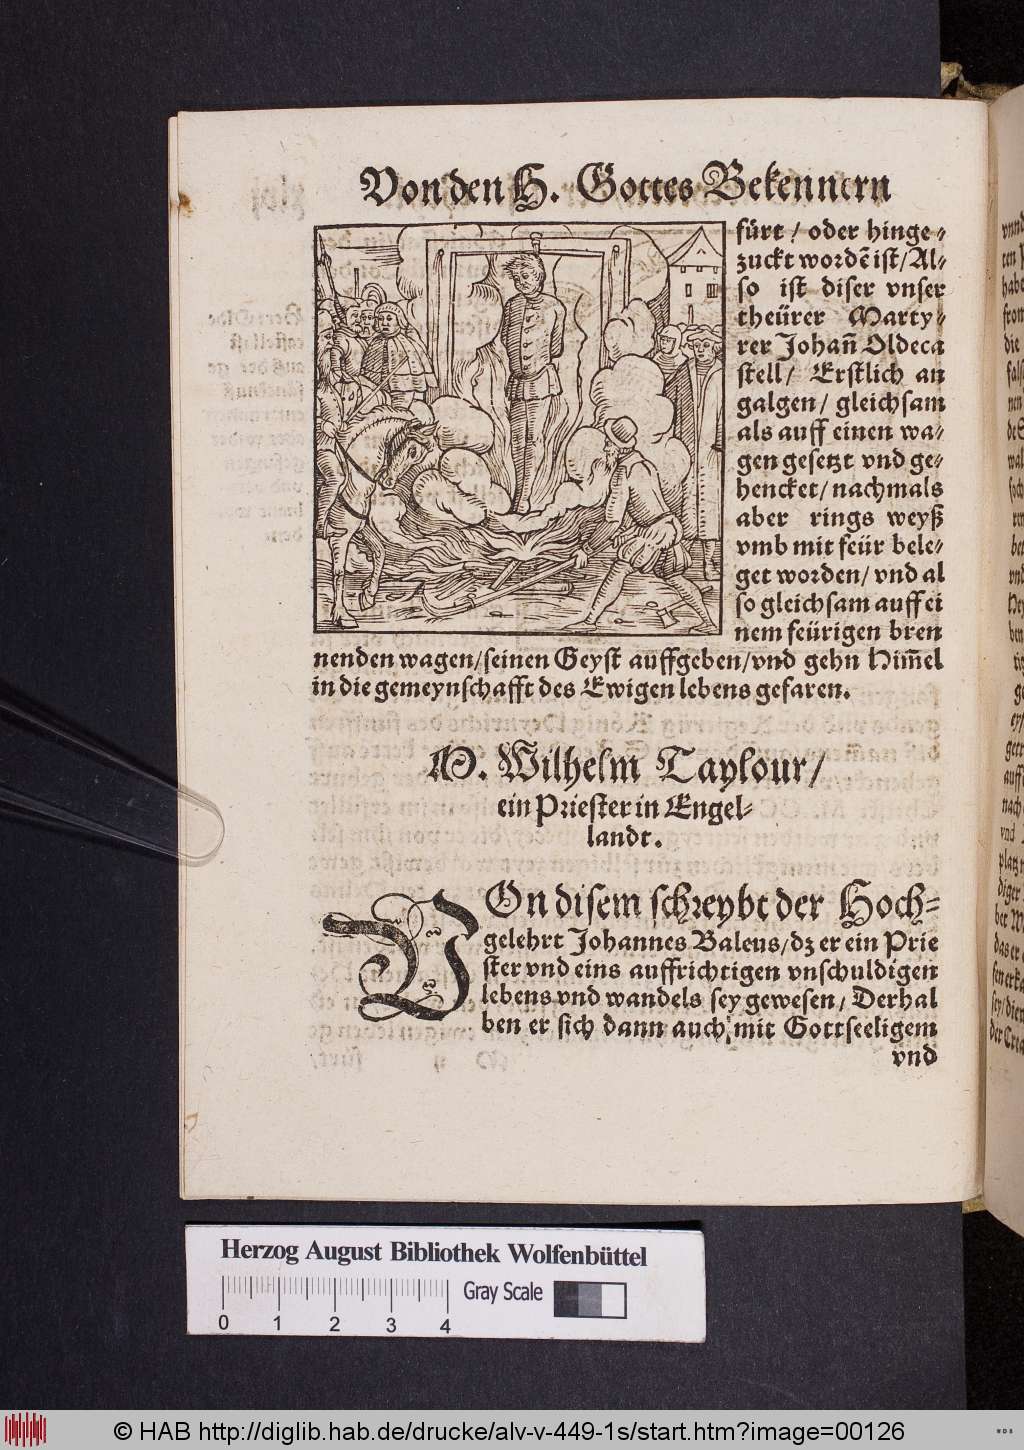 Von den H. Gottes Bekennern
fürt / oder hinge⸗
zuckt wordē ist / Al⸗
so ist diser vnser
theürer Marty⸗
rer Johañ Oldeca
stell / Erstlich an
galgen / gleichsam
als auff einen wa⸗
gen gesetzt vnd ge⸗
hencket / nachmals
aber rings weyß
vmb mit feür bele⸗
get worden / vnd al
so gleichsam auff ei
nem feürigen bren
nenden wagen / seinen Geyst auffgeben / vnd gehn Him̄el
in die gemeynschafft des Ewigen lebens gefaren.
M. Wilhelm Taylour /
ein Priester in Engel⸗
landt.
VOn disem schreybt der Hoch⸗
gelehrt Johannes Baleus / dz er ein Prie
ster vnd eins auffrichtigen vnschuldigen
lebens vnd wandels sey gewesen / Derhal
ben er sich dann auch mit Gottseeligem
vnd
Herzog August Bibliothek Wolfenbüttel
Gray Scale
0 1 2 3 4
© HAB http://diglib.hab.de/drucke/alv-v-449-1s/start.htm?image=00126